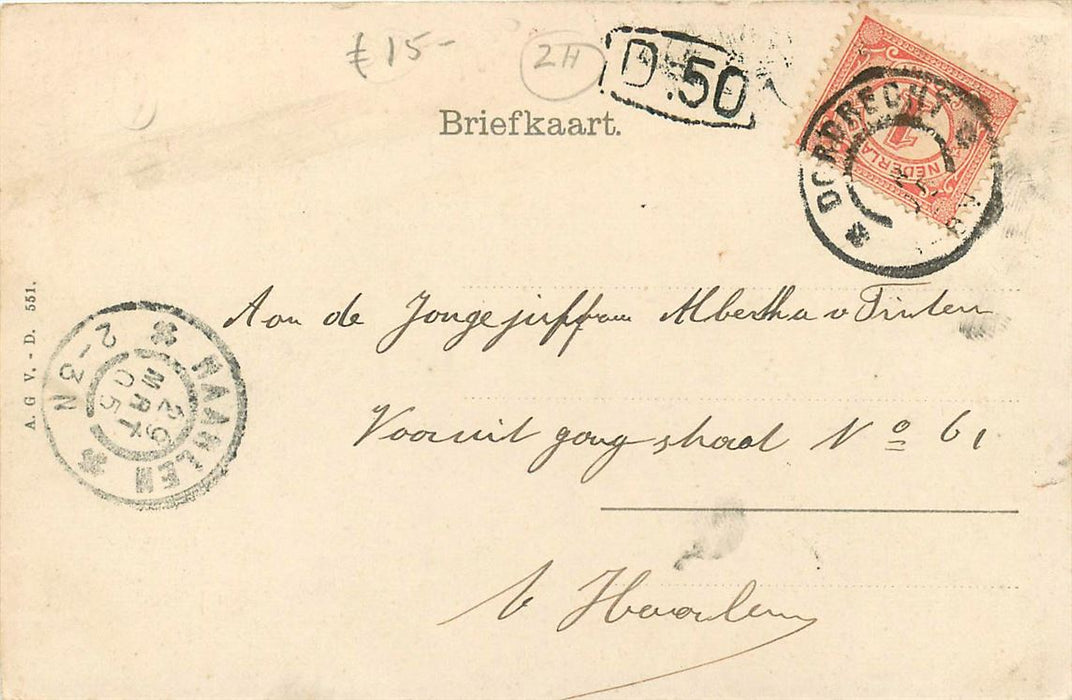 € 15-
2H
D.50
Briefkaart.
DORDRECHT
NEDERLA
1
A. G V. - D. 551.
HAARLEM
29 MRT 05
2-3N
Aan de Jongejuffrau Albertha v Tinten
Vooruit gang straat No 61
te Haarlem